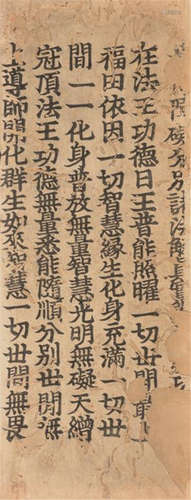 礙分別諸法
在法王功德日王普能照曜一切世間最
福田依因一切智慧緣生化身充滿一切世
間一一化身普放無量智慧光明無礙天繒
冠頂法王功德無量悉能隨順分別世間
上導師開化群生如來智慧一切世間無畏